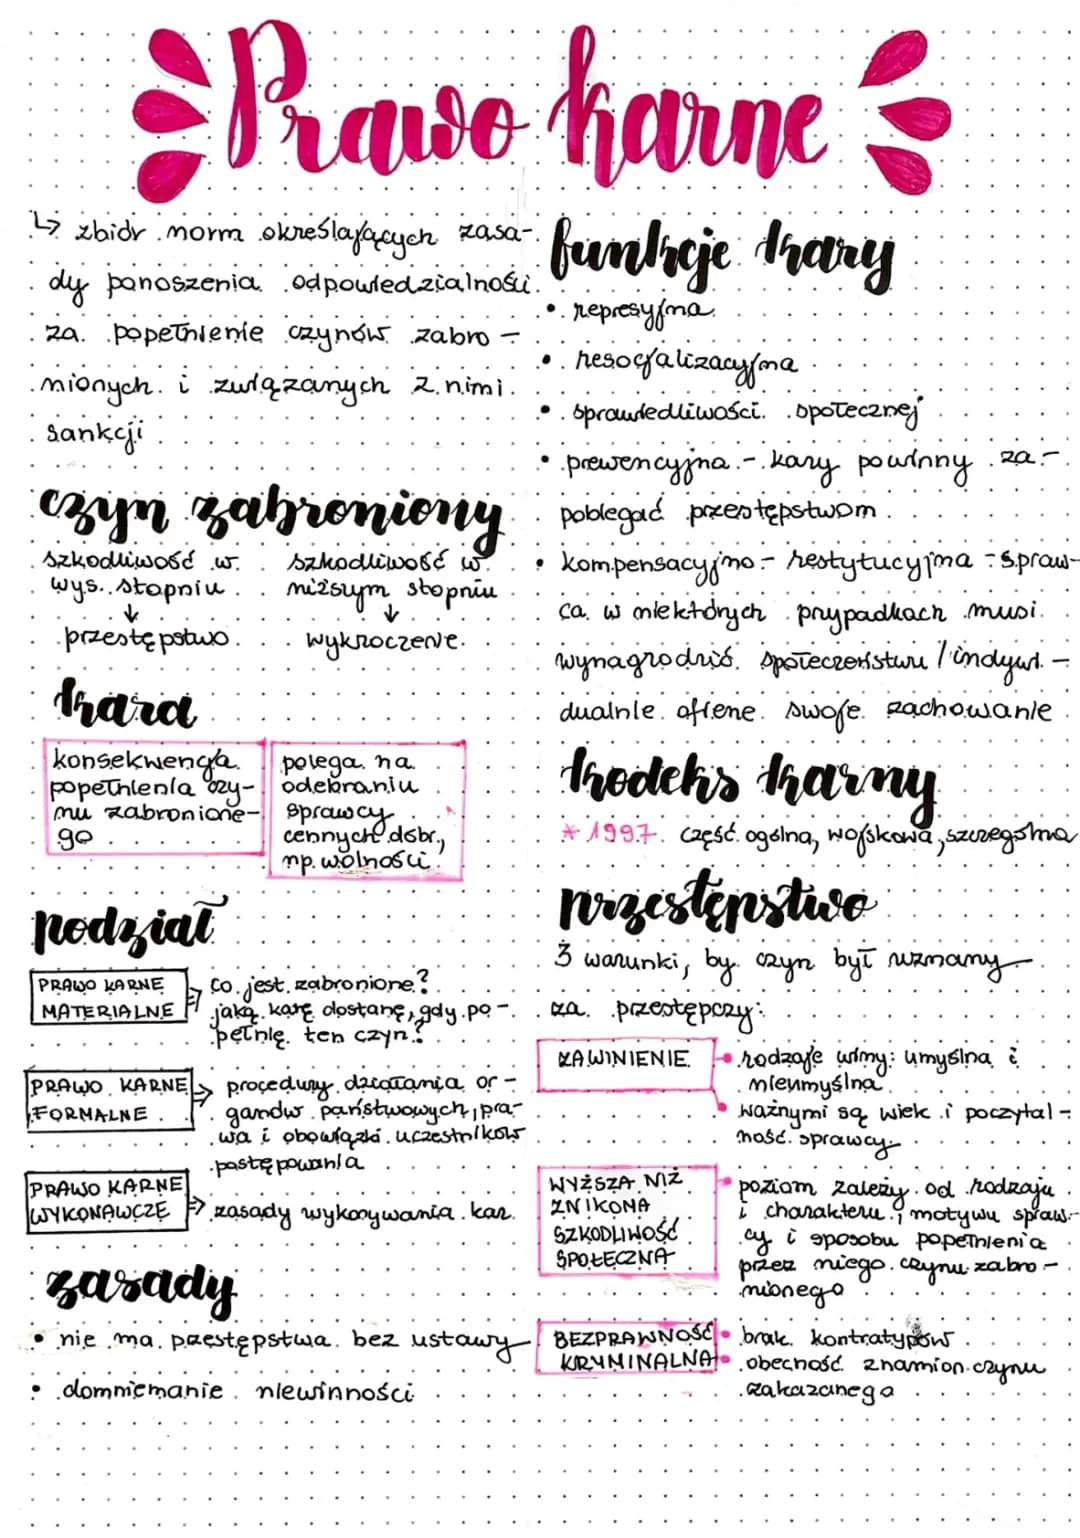 Prawo karne
↳ zbiór norm określających zasa-
dy ponoszenia odpowiedzialności
za popełnienie czynów zabro-
nionych i związanych z nimi
sankcji
czyn zabroniony
szkodliwość w
wys. stopniu
↓
przestępstwo
szkodliwość w
niższym stopniu
↓
wykroczenie
kara
konsekwencja
popełnienia czy-
nu zabronione-
go
polega na
odebraniu
sprawcy
cennych dóbr,
np. wolności
podział
PRAWO KARNE
MATERIALNE
⇒ co jest zabronione?
jaką karę dostanę, gdy po-
pełnię ten czyn?
PRAWO KARNE
FORMALNE
⇒ procedury działania or-
ganów państwowych, pra-
wa i obowiązki uczestników
postępowania
PRAWO KARNE
WYKONAWCZE
⇒ zasady wykonywania kar
zasady
• nie ma przestępstwa bez ustawy
• domniemanie niewinności
funkcje kary
• represyjna
• resocjalizacyjna
• sprawiedliwości społecznej
• prewencyjna - kary powinny za-
pobiegać przestępstwom
• kompensacyjno - restytucyjna - spraw-
ca w niektórych przypadkach musi
wynagrodzić społeczeństwu / indywi-
dualnie ofierze swoje zachowanie
kodeks karny
* 1997 część ogólna, wojskowa, szczególna
przestępstwo
3 warunki, by czyn był uznany
za przestępczy:
ZAWINIENIE
• rodzaje winy: umyślna i
nieumyślna
• ważnymi są wiek i poczytal-
ność sprawcy
WYŻSZA NIŻ
ZNIKOMA
SZKODLIWOŚĆ
SPOŁECZNA
• poziom zależy od rodzaju
i charakteru, motywu spraw-
cy i sposobu popełnienia
przez niego czynu zabro-
nionego
BEZPRAWNOŚĆ
KRYMINALNA
• brak kontratypów
• obecność znamion czynu
zakazanego